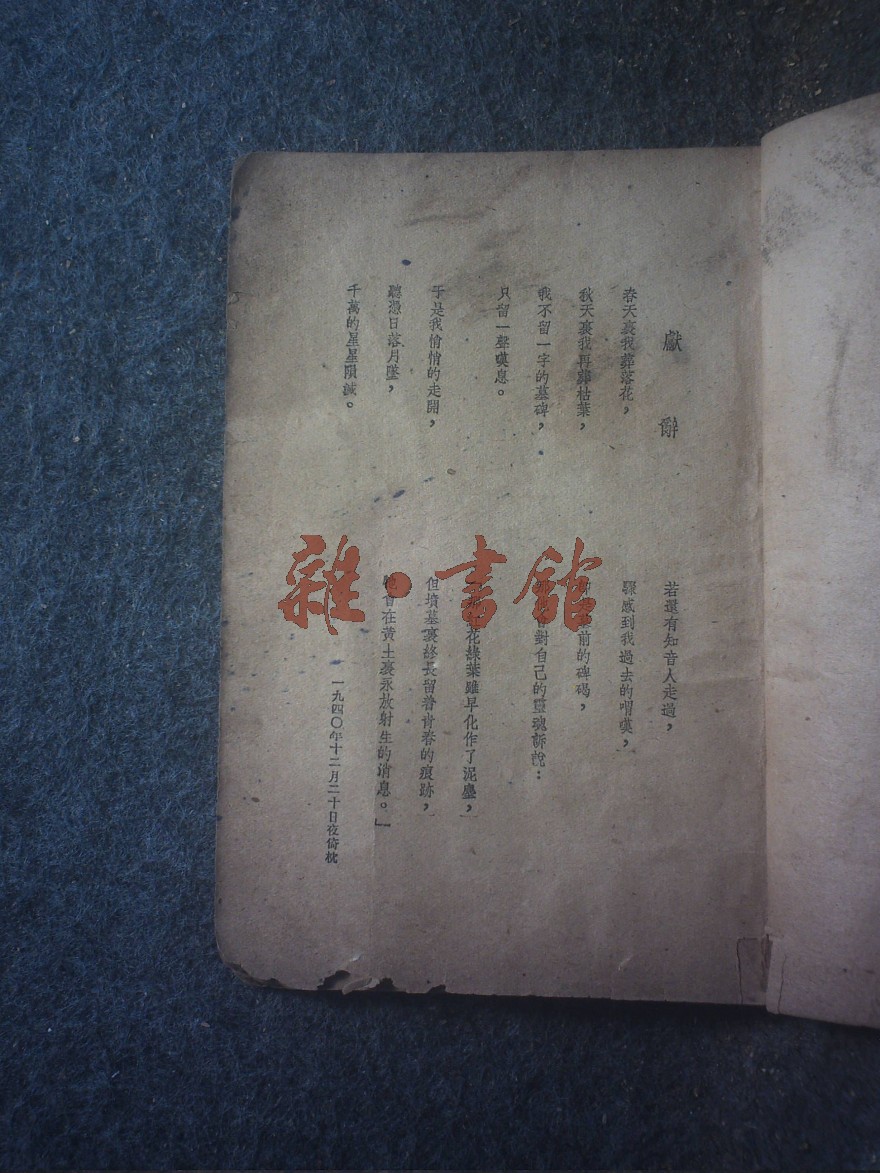 獻辭
春天裏我葬落花，
秋天裏我再葬枯葉，
我不留一字的墓碑，
只留一聲嘆息。
于是我悄悄的走開，
聽憑日落月墜，
千萬的星星隕滅。
若還有知音人走過，
驟感到我過去的喟嘆，
前的碑碣，
對自己的靈魂訴說：
花綠葉雖早化作了泥塵，
但墳墓裏終長留着青春的痕跡，
會在黃土裏永放射生的消息。」
一九四〇年十二月二十日夜倚枕
雜·書館